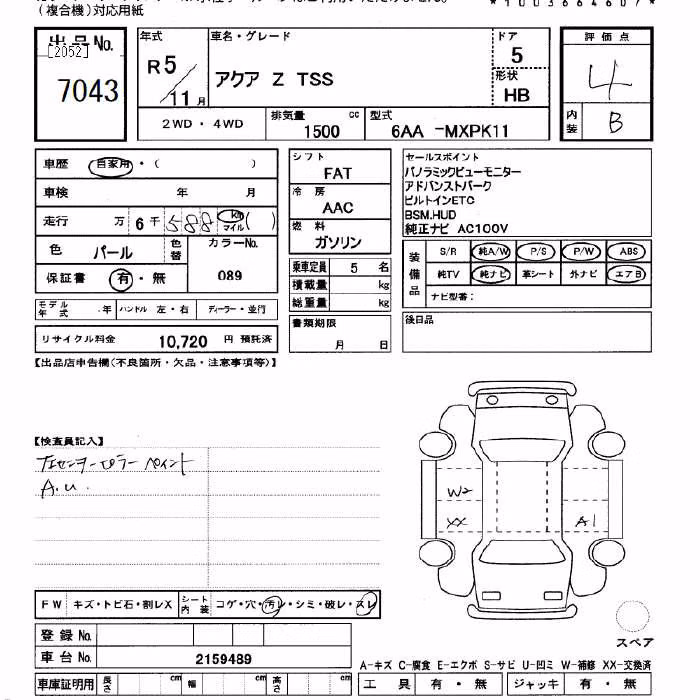 (複合機)対応用紙
*1003664607*
出品No.
[2052]
7043
年式
R5/11月
車名・グレード
アクア Z TSS
ドア
5
形状
HB
2WD・4WD
排気量 cc
1500
型式
6AA -MXPK11
評価点
4
内装
B
車歴 自家用・( )
車検 年 月
走行 万 6千 588 km マイル ( )
色 パール 色替
カラーNo.
089
保証書 有・無
モデル年式 .年 ハンドル 左・右 ディーラー・並行
リサイクル料金 10,720 円 預託済
シフト
FAT
冷房
AAC
燃料
ガソリン
乗車定員 5 名
積載量 kg
総重量 kg
書類期限
月 日
セールスポイント
パノラミックビューモニター
アドバンストパーク
ビルトインETC
BSM.HUD
純正ナビ AC100V
装備品
S/R 純A/W P/S P/W ABS
純TV 純ナビ 革シート 外ナビ エアB
ナビ型番:
後日品
【出品店申告欄(不良箇所・欠品・注意事項等)】
【検査員記入】
左センターピラー ペイント
A.U.
W2
XX
A1
スペア
FW キズ・トビ石・割レX
シート内装 コゲ・穴・汚レ・シミ・破レ・スレ
登録No.
車台No. 2159489
車庫証明用 長さ cm 幅 cm 高さ cm
A-キズ C-腐食 E-エクボ S-サビ U-凹ミ W-補修 XX-交換済
工具 有・無 ジャッキ 有・無